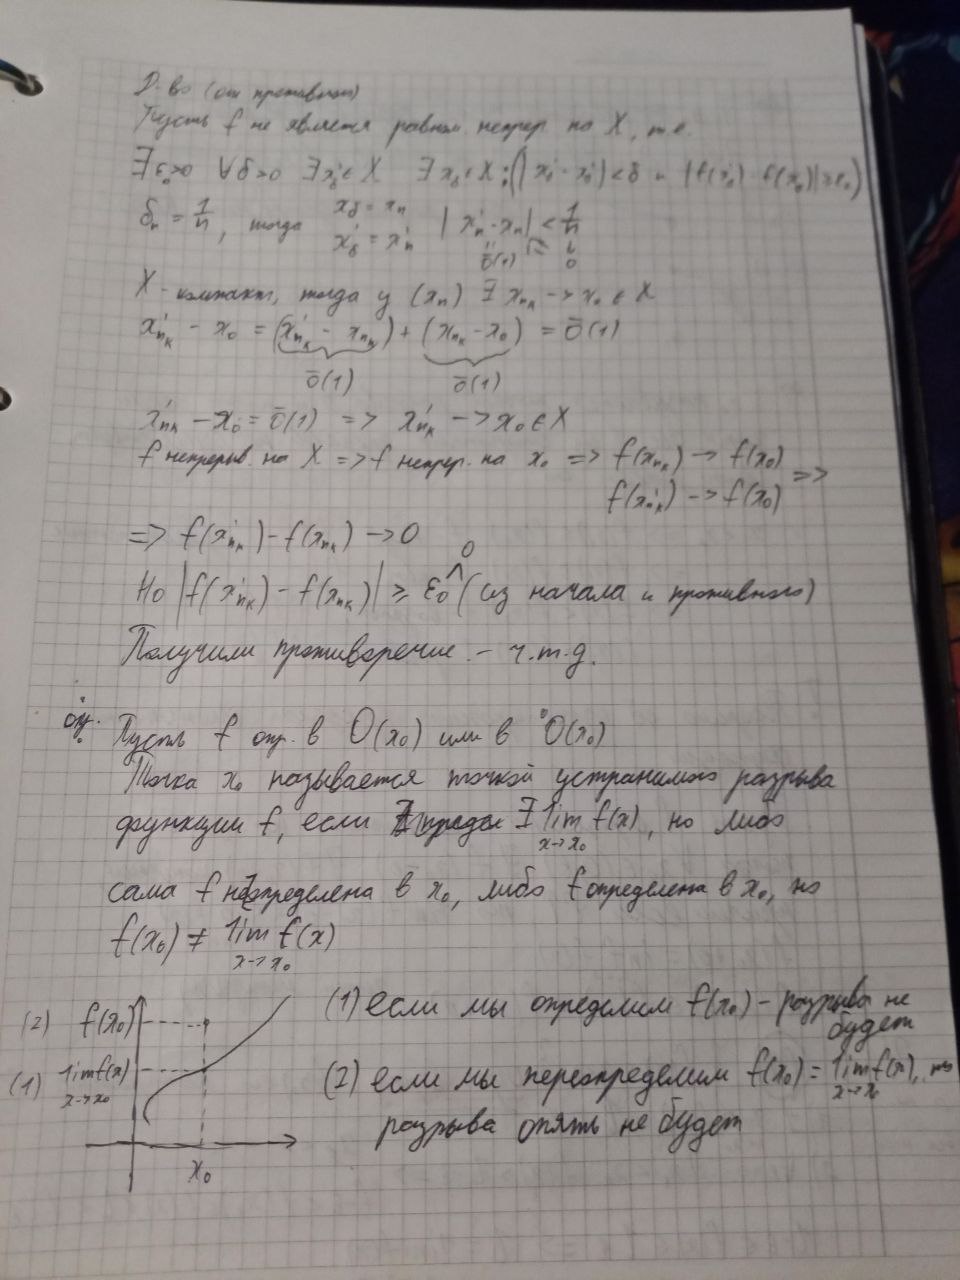 Д-во (от противного)
Пусть f не является равном. непрер. на X, т.е.
∃ε₀>0 ∀δ>0 ∃x'δ∈X ∃xδ∈X : (|x'δ - xδ|<δ и |f(x'δ) - f(xδ)|≥ε₀)
δₙ = 1/n, тогда xδ = xₙ
x'δ = x'ₙ |x'ₙ - xₙ| < 1/n
ō(1) ⇐ ↓ 0
X - компакт, тогда у (xₙ) ∃ xₙₖ -> x₀ ∈ X
x'ₙₖ - x₀ = (x'ₙₖ - xₙₖ) + (xₙₖ - x₀) = ō(1)
ō(1) ō(1)
x'ₙₖ - x₀ = ō(1) => x'ₙₖ -> x₀ ∈ X
f непрерыв. на X => f непрер. на x₀ => f(xₙₖ) -> f(x₀)
f(x'ₙₖ) -> f(x₀) =>
=> f(x'ₙₖ) - f(xₙₖ) -> 0
0
Но |f(x'ₙₖ) - f(xₙₖ)| ≥ ε₀ (из начала и противного)
Получили противоречие. - ч.т.д.
Опр. Пусть f опр. в O(x₀) или в °O(x₀)
Точка x₀ называется точкой устранимого разрыва
функции f, если ∃ lim f(x), но либо
x->x₀
сама f не определена в x₀, либо f определена в x₀, но
f(x₀) ≠ lim f(x)
x->x₀
(2) f(x₀)
(1) lim f(x)
x->x₀
x₀
(1) если мы определим f(x₀) - разрыва не
будет
(2) если мы переопределим f(x₀) = lim f(x), то
x->x₀
разрыва опять не будет